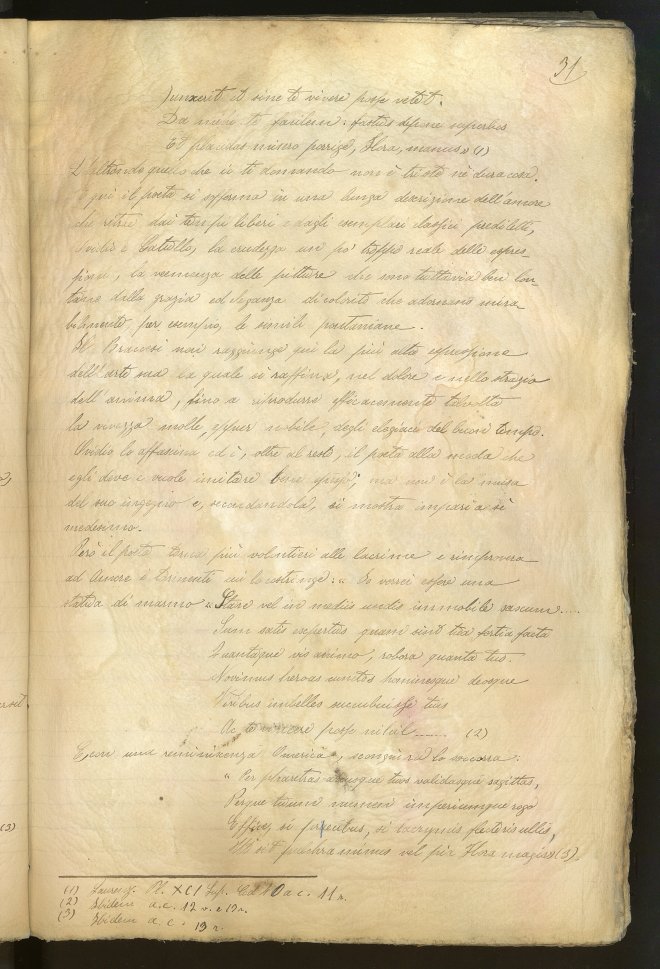 31
Junxerit et sine te vivere posse vetet.
Da mihi te facilem: fastus depone superbos
Et plaudas misero porrige, Flora, manus» (1)
L'altronde quello che io te domando non è triste nè dura cosa.
E qui il poeta si sofferma in una lunga descrizione dell'amore
che ritrae dai tempi liberi e dagli esemplari classici prediletti,
Ovidio e Catullo, la crudezza un po' troppo reale delle espres-
sioni, la veemenza delle pitture che sono tuttavia ben lon-
tane dalla grazia ed eleganza di colorito che adornano mira-
bilmente, per esempio, le simili pontaniane.
Il Braccesi non raggiunge qui la più alta espressione
dell'arte sua la quale si raffina, nel dolore e nello strazio
dell'anima, sino a riprodurre efficacemente talvolta
la vivezza molle, eppur nobile degli elegiaci del buon tempo.
Ovidio lo affascina ed è, oltre al resto, il poeta alla moda che
egli deve e vuole imitare ma non è la musa
del suo ingegno e, secondandola, si mostra impari a sè
medesimo.
Però il poeta torna più volentieri alle lacrime e rimprovera
ad Amore i tormenti cui lo costringe: « Io vorrei essere una
statua di marmo « Stare vel in mediis undis immobile saxum....
Sum satis expertus quam sint tua fortia facta
Quantaque vis animo, robora quanta tuis.
Novimus heroas cunctos hominesque deosque
Viribus imbelles succubuisse tuis
Ac te vincere posse nihil ...... (2)
E, con una reminiscenza Omerica, scongiura lo soccorra:
« Per pharetras arcusque tuos validasque sagittas,
Perque tuum numen imperiumque rogo
Effice, si precibus, si lacrymis flecteris ullis,
Ut sit pulchra minus vel pia Flora magis» (3).
(1) Laurenz. Pl. XCI Sup. Cod. 40 a c. 11 r.
(2) Ibidem a c. 12 v. e 13 r.
(3) Ibidem a c. 13 r.
(3)